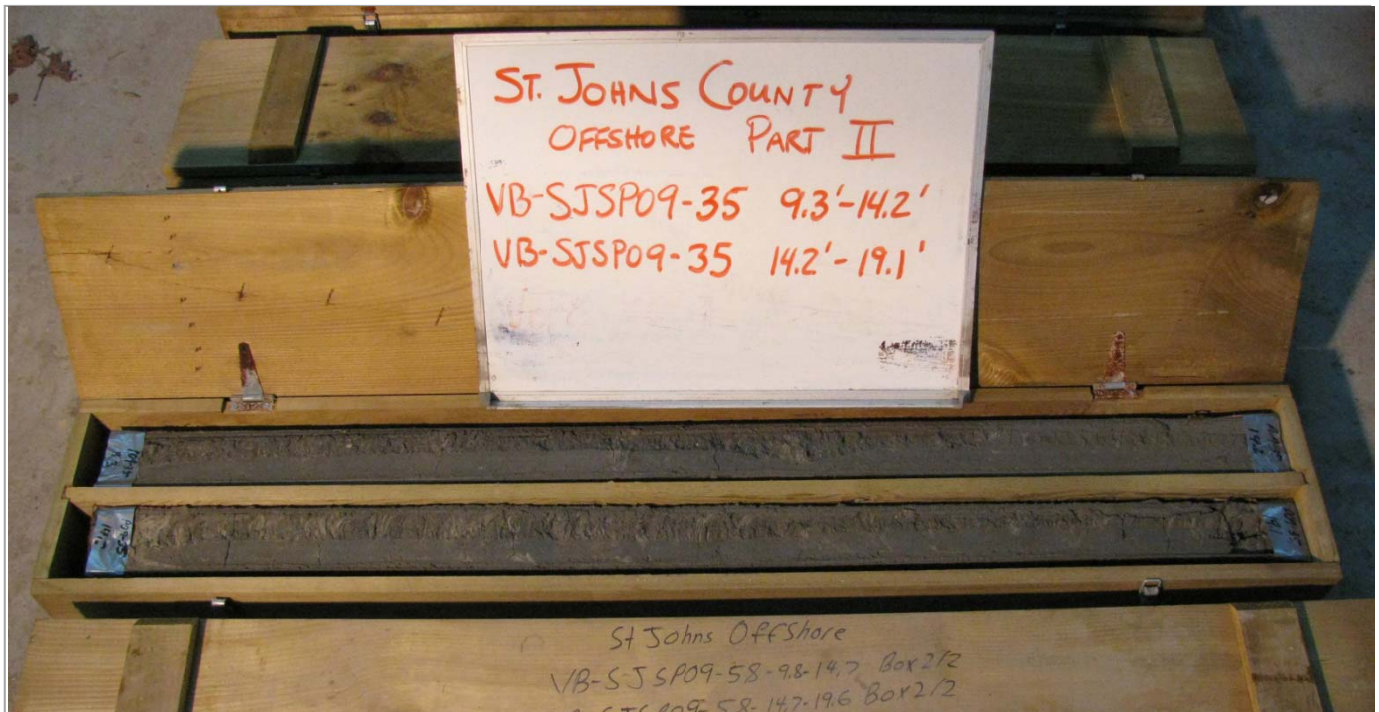 ST. JOHNS COUNTY
OFFSHORE PART II
VB-SJSP09-35 9.3'-14.2'
VB-SJSP09-35 14.2'-19.1'
14.2
14.2
19.1
St Johns Offshore
VB-SJSP09-58-9.8-14.7 Box 2/2
SJSP09-58-14.7-19.6 Box 2/2